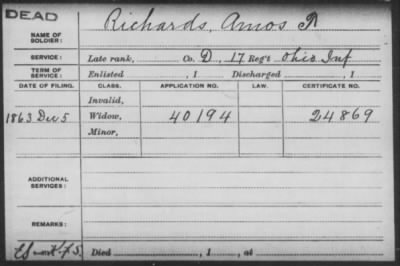 DEAD
NAME OF SOLDIER: Richards, Amos R
SERVICE: Late rank, Co. D, 17 Reg't Ohio Inf
TERM OF SERVICE: Enlisted , 1 Discharged , 1
DATE OF FILING. CLASS. APPLICATION NO. LAW. CERTIFICATE NO.
Invalid,
1863 Dec 5 Widow, 40194 24869
Minor,
ADDITIONAL SERVICES:
REMARKS:
Died , 1 , at